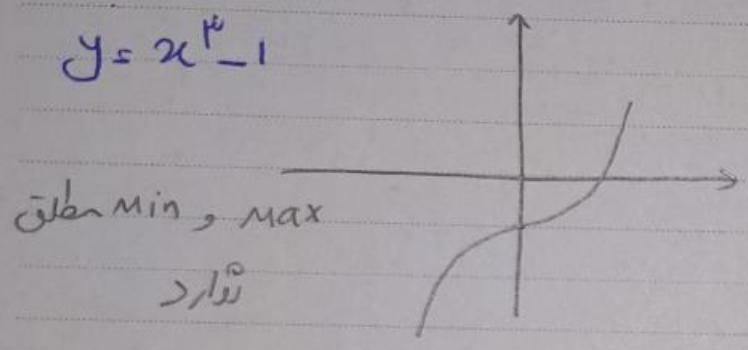 y = x^۳ - 1
Max و Min مطلق
ندارد